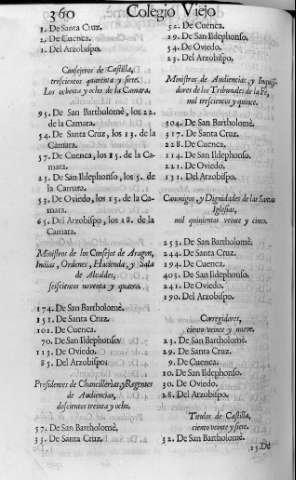 360 Colegio Viejo
1. De Santa Cruz.
2. De Cuenca.
1. Del Arzobispo.
Consejeros de Castilla,
trescientos quarenta y siete.
Los ochenta y ocho de la Camara.
95. De San Bartholomè, los 22.
de la Camara.
54. De Santa Cruz, los 13. de la
Camara.
57. De Cuenca, los 15. de la Ca-
mara.
23. De San Ildephonso, los 5. de
la Camara.
53. De Oviedo, los 15. de la Ca-
mara.
65. Del Arzobispo, los 18. de la
Camara.
Ministros de los Consejos de Aragon,
Indias, Ordenes, Hacienda, y Sala
de Alcaldes,
seiscientos noventa y quatro.
174. De San Bartholomè.
151. De Santa Cruz.
101. De Cuenca.
70. De San Ildephonso.
113. De Oviedo.
85. Del Arzobispo.
Presidentes de Chancillerias, y Regentes
de Audiencias,
doscientos treinta y ocho.
57. De San Bartholomè.
35. De Santa Cruz.
52. De Cuenca.
29. De San Ildephonso.
54. De Oviedo.
23. Del Arzobispo.
Ministros de Audiencias, y Inquisi-
dores de los Tribunales de la Fè,
mil trescientos y quince.
304. De San Bartholomè.
317. De Santa Cruz.
228. De Cuenca.
114. De San Ildephonso.
221. De Oviedo.
131. Del Arzobispo.
Canonigos, y Dignidades de las Santas
Iglesias,
mil quinientos veinte y cinco.
253. De San Bartholomè.
244. De Santa Cruz.
194. De Cuenca.
403. De San Ildephonso.
241. De Oviedo.
190. Del Arzobispo.
Corregidores,
ciento veinte y nueve.
23. De San Bartholomè.
29. De Santa Cruz.
9. De Cuenca.
10. De San Ildephonso.
30. De Oviedo.
28. Del Arzobispo.
Titulos de Castilla,
ciento veinte y siete.
32. De San Bartholomè.
25. De